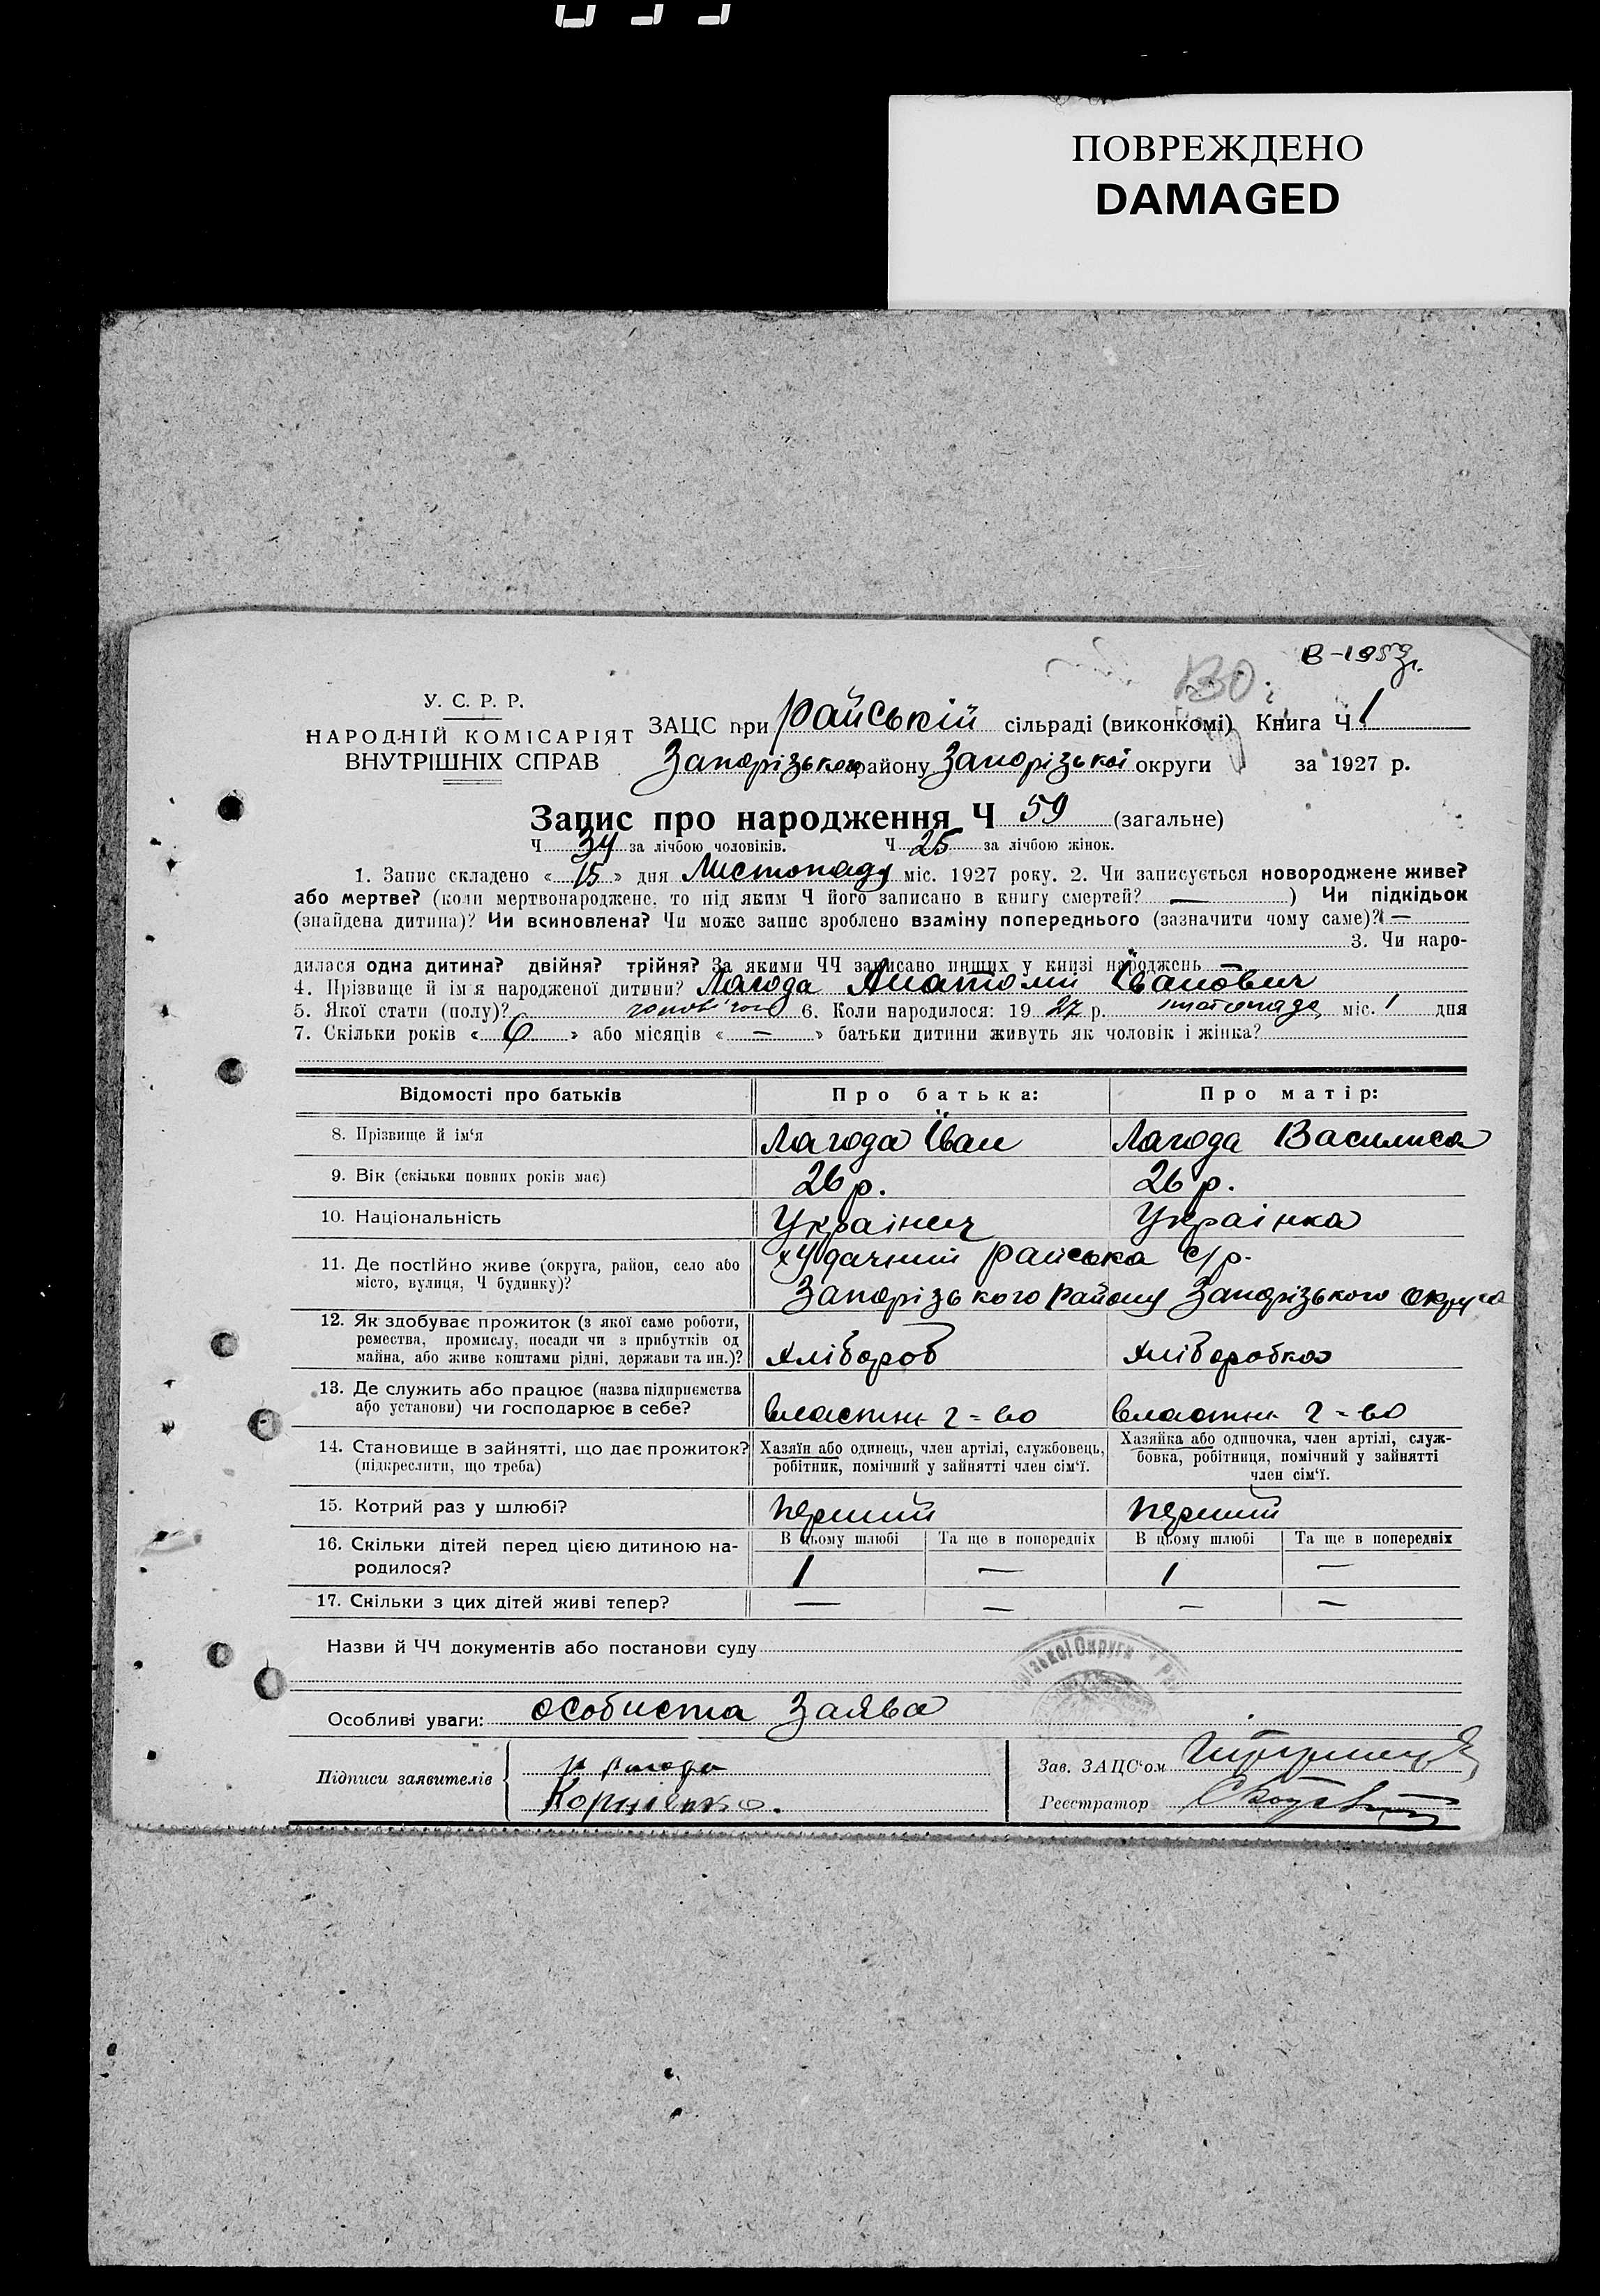 ПОВРЕЖДЕНО
DAMAGED
В-1953г.
130
У. С. Р. Р.
НАРОДНІЙ КОМІСАРІЯТ
ВНУТРІШНІХ СПРАВ
ЗАЦС при Райській сільраді (виконкомі) Книга Ч 1
Запорізького району Запорізької округи за 1927 р.
Запис про народження Ч 59 (загальне)
Ч 34 за лічбою чоловіків. Ч 25 за лічбою жінок.
1. Запис складено « 15 » дня Листопаду міс. 1927 року. 2. Чи записується новороджене живе?
або мертве? (коли мертвонароджене, то під яким Ч його записано в книгу смертей? — ) Чи підкідьок
(знайдена дитина)? Чи всиновлена? Чи може запис зроблено взаміну попереднього (зазначити чому саме)? —
3. Чи наро-
дилася одна дитина? двійня? трійня? За якими ЧЧ записано инших у книзі народжень
4. Прізвище й ім'я народженої дитини? Лагода Анатолій Іванович
5. Якої стати (полу)? чоловічого 6. Коли народилося: 19 27 р. листопада міс. 1 дня
7. Скільки років « 6 » або місяців « — » батьки дитини живуть як чоловік і жінка?
Відомості про батьків Про батька: Про матір:
8. Прізвище й ім'я Лагода Іван Лагода Василиса
9. Вік (скільки повних років має) 26 р. 26 р.
10. Національність Українец Українка
11. Де постійно живе (округа, район, село або х Удачний Райська с/р.
місто, вулиця, Ч будинку)? Запорізького Району Запорізького округа
12. Як здобуває прожиток (з якої саме роботи,
ремества, промислу, посади чи з прибутків од
майна, або живе коштами рідні, держави та ин.)? Хлібороб Хліборобка
13. Де служить або працює (назва підприємства
або установи) чи господарює в себе? властне г-во властне г-во
14. Становище в зайнятті, що дає прожиток? Хазяїн або одинець, член артілі, службовець, Хазяйка або одиночка, член артілі, служ-
(підкреслити, що треба) робітник, помічний у зайнятті член сім'ї. бовка, робітниця, помічний у зайнятті
член сім'ї.
15. Котрий раз у шлюбі? перший перший
16. Скільки дітей перед цією дитиною на- В цьому шлюбі Та ще в попередніх В цьому шлюбі Та ще в попередніх
родилося? 1 — 1 —
17. Скільки з цих дітей живі тепер? — — — —
Назви й ЧЧ документів або постанови суду
Округи
Особливі уваги: особиста заява
Підписи заявителів
Зав. ЗАЦС'ом
Реєстратор